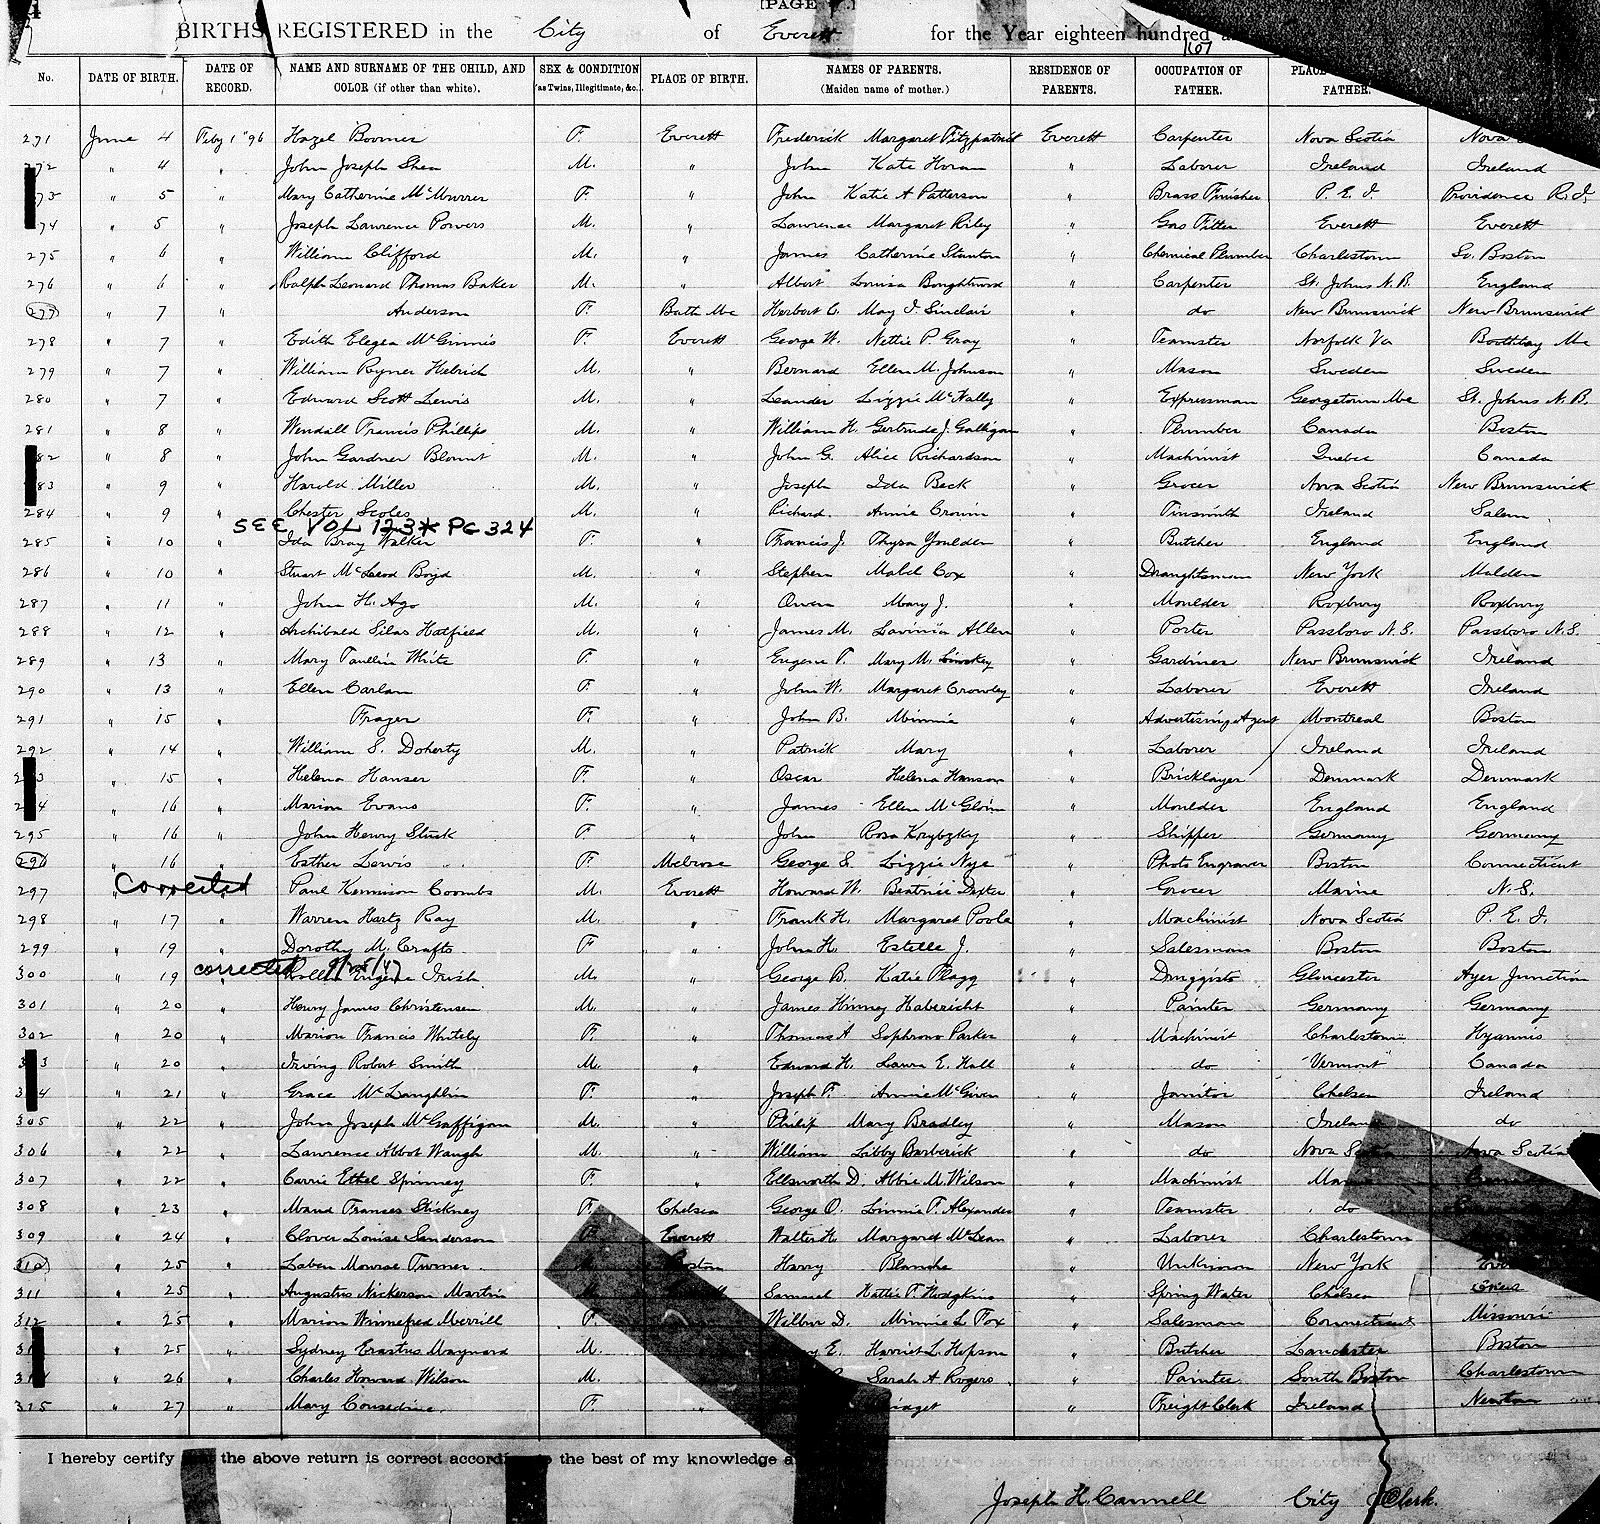 [PAGE
BIRTHS REGISTERED in the City of Everett for the Year eighteen hundred
107
No. DATE OF BIRTH. DATE OF RECORD. NAME AND SURNAME OF THE CHILD, AND COLOR (if other than white). SEX & CONDITION as Twins, Illegitimate, &c. PLACE OF BIRTH. NAMES OF PARENTS. (Maiden name of mother.) RESIDENCE OF PARENTS. OCCUPATION OF FATHER. PLACE FATHER.
271 June 4 Feby 1" 96 Hazel Boomer F. Everett Frederick Margaret Fitzpatrick Everett Carpenter Nova Scotia Nova
272 " 4 " John Joseph Shea M. " John Kate Horan " Laborer Ireland Ireland
73 " 5 " Mary Catherine F. " John Katie A Patterson " Brass Finisher P. E. I. Providence R.I.
74 " 5 " Joseph Lawrence Powers M. " Lawrence Margaret Riley " Gas Fitter Everett Everett
275 " 6 " William Clifford M. " James Catherine Stanton " Chemical Plumber Charlestown So. Boston
276 " 6 " Ralph Leonard Thomas Baker M. " Albert Louisa " Carpenter St. Johns N.B. England
277 " 7 " Anderson F. Bath Me Herbert C. May I. Sinclair " do New Brunswick New Brunswick
278 " 7 " Edith McGinnis F. Everett George W. Nettie P. Gray " Teamster Norfolk Va Boothbay Me
279 " 7 " William Rymer Helrich M. " Bernard Ellen M. Johnson " Mason Sweden Sweden
280 " 7 " Edward Scott Lewis M. " Leander Lizzie McNally " Expressman Georgetown Me St. Johns N.B.
281 " 8 " Wendall Francis Phillips M. " William H. Gertrude J. Galligan " Plumber Canada Boston
82 " 8 " John Gardner Blount M. " John G. Alice Richardson " Machinist Quebec Canada
83 " 9 " Harold Miller M. " Joseph Ida Beck " Grocer Nova Scotia New Brunswick
284 " 9 " Chester Scoles M. " Richard Annie Cronin " Tinsmith Ireland Salem
SEE VOL 123* PG 324
285 " 10 " Ida Bray Walker F. " Francis J. Thyra Youlden " Butcher England England
286 " 10 " Stuart McLeod Boyd M. " Stephen Cox " Draughtsman New York Malden
287 " 11 " John H. Ago M. " Owen Mary J. " Moulder Roxbury Roxbury
288 " 12 " Archibald Silas Hatfield M. " James M. Lavinia Allen " Porter Passboro N.S. Passboro N.S.
289 " 13 " Mary Paullin White F. " Eugene T. Mary M. " Gardiner New Brunswick Ireland
290 " 13 " Ellen Carlan F. " John W. Margaret Crowley " Laborer Everett Ireland
291 " 15 " Frazer F. " John B. Minnie " Advertising Agent Montreal Boston
292 " 14 " William S. Doherty M. " Patrick Mary " Laborer Ireland Ireland
3 " 15 " Helena Hanser F. " Oscar Helena Hanson " Bricklayer Denmark Denmark
4 " 16 " Marion Evans F. " James Ellen McGloin " Moulder England England
295 " 16 " John Henry Stuck F " John Rosa Krybzky " Shipper Germany Germany
296 " 16 " Esther Lewis F. Melrose George E. Lizzie Nye " Photo Engraver Boston Connecticut
297 Corrected " Paul Kennison Coombs M. Everett Howard W. Beatrice Dexter " Grocer Maine N.S.
298 " 17 " Warren Hartz Ray M. " Frank H. Margaret Poole " Machinist Nova Scotia P. E. I.
299 " 19 " Dorothy M. Crafts F " John H. Estelle J. " Salesman Boston Boston
300 " 19 corrected Eugene Irish M. " George B. Katie Flagg " Druggist Gloucester Ayer Junction
301 " 20 " Henry James Christensen M. " James Hinney Habericht " Painter Germany Germany
302 " 20 " Marion Francis Whitely F. " Thomas A Sophrona Parker " Machinist Charlestown Hyannis
3 " 20 " Irving Robert Smith M. " Edward H. Laura E. Hall " do Vermont Canada
3 4 " 21 " Grace McLaughlin F. " Joseph F. Annie McGiven " Janitor Chelsea Ireland
305 " 22 " John Joseph McGaffigan M. " Philip Mary Bradley " Mason Ireland do
306 " 22 " Lawrence Abbot Waugh M. " William Libby Barberick " do Nova Scotia Nova Scotia
307 " 22 " Carrie Ethel Spinney F. " Ellsworth D. Abbie M. Wilson " Machinist
308 " 23 " Maud Frances Stickney F. Chelsea George O. Linnie T. Alexander " Teamster do
309 " 24 " Clover Louise Sanderson Everett Walter H. Margaret McLean " Laborer Charlestown
310 " 25 " Laben Monroe Turner Boston Harry Blanche " Unknown New York
311 " 25 " Augustus Nickerson Martin Samuel Hattie T. Hodgkins " Spring Water Chelsea
312 " 25 " Marion Winnefred Merrill F. Wilbur D. Minnie L Fox " Salesman Connecticut Missouri
31 " 25 " Sydney Erastus Maynard M. E. Harriet L. Hopson " Butcher Lancaster Boston
31 " 26 " Charles Howard Wilson M. Sarah A Rogers " Painter South Boston Charlestown
315 " 27 " Mary Consedine F " " Freight Clerk Ireland Newton
I hereby certify the above return is correct to the best of my knowledge
Joseph H. Cannell City Clerk.